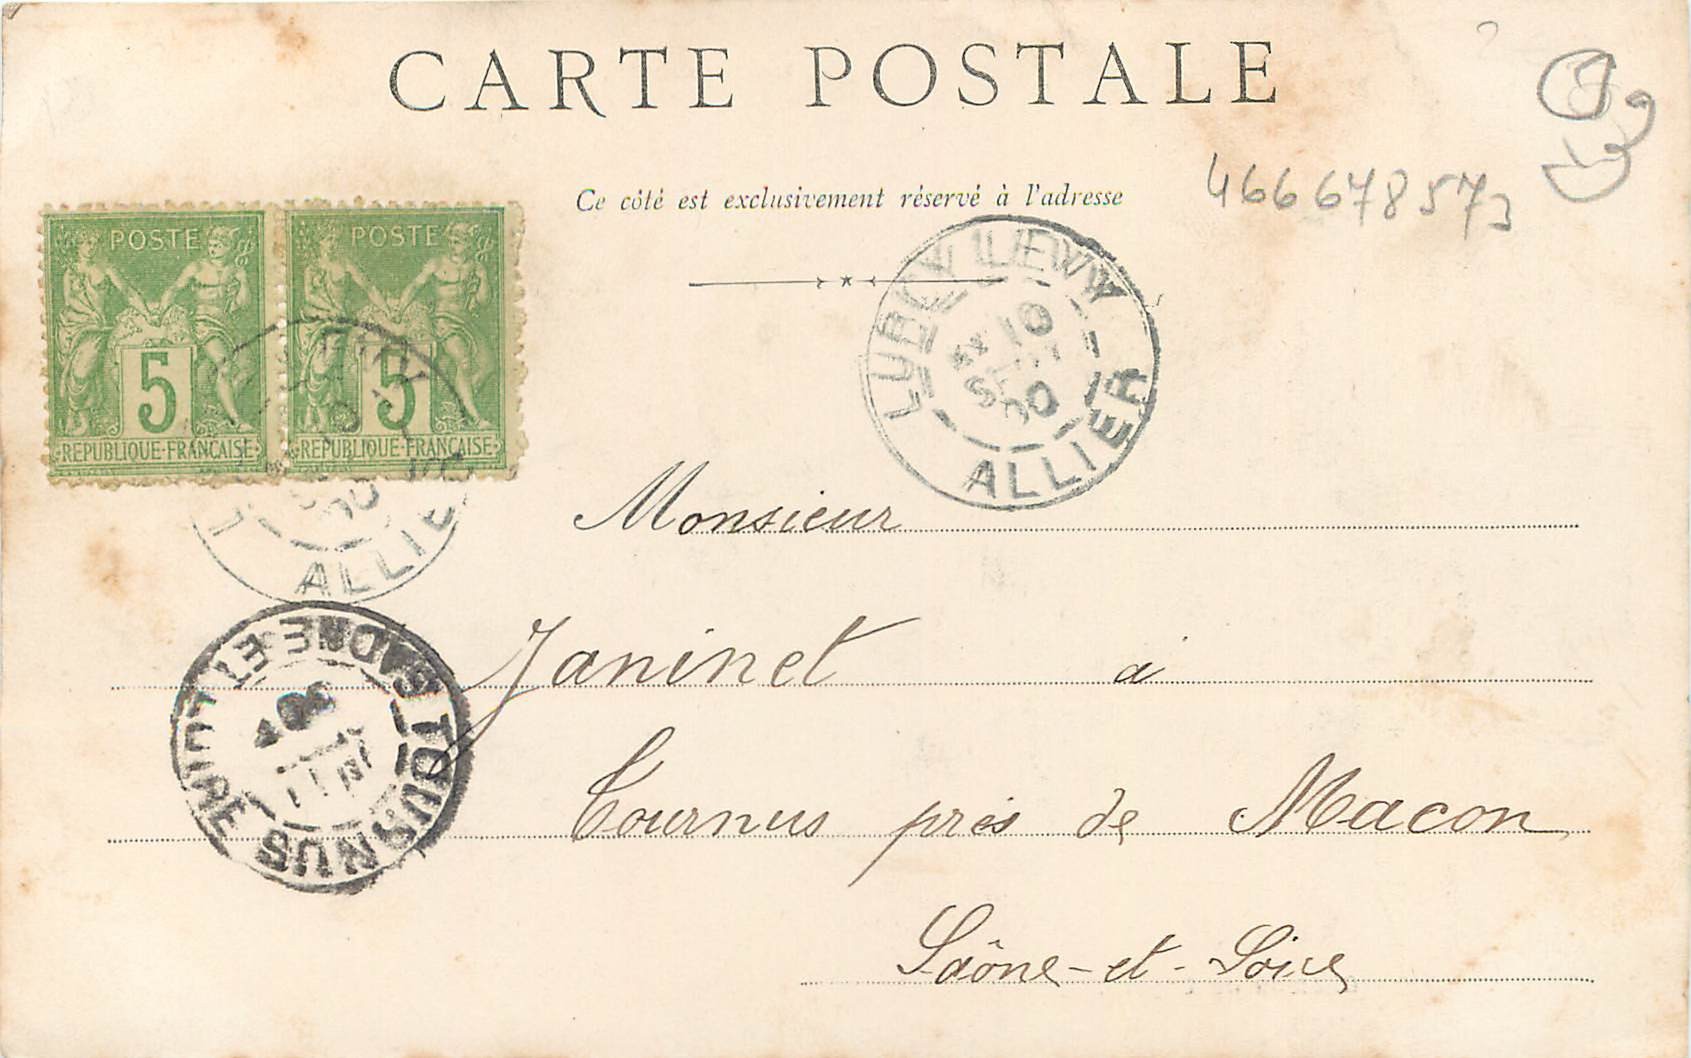 CARTE POSTALE
Ce côté est exclusivement réservé à l'adresse
466 678 573
POSTE POSTE
5 5
REPUBLIQUE FRANÇAISE REPUBLIQUE FRANÇAISE
10
SEPT
00
ALLIER
ALLIER
TOURNUS
SAONE ET LOIRE
Monsieur
Janinet à
Tournus près de Macon
Saône-et-Loire